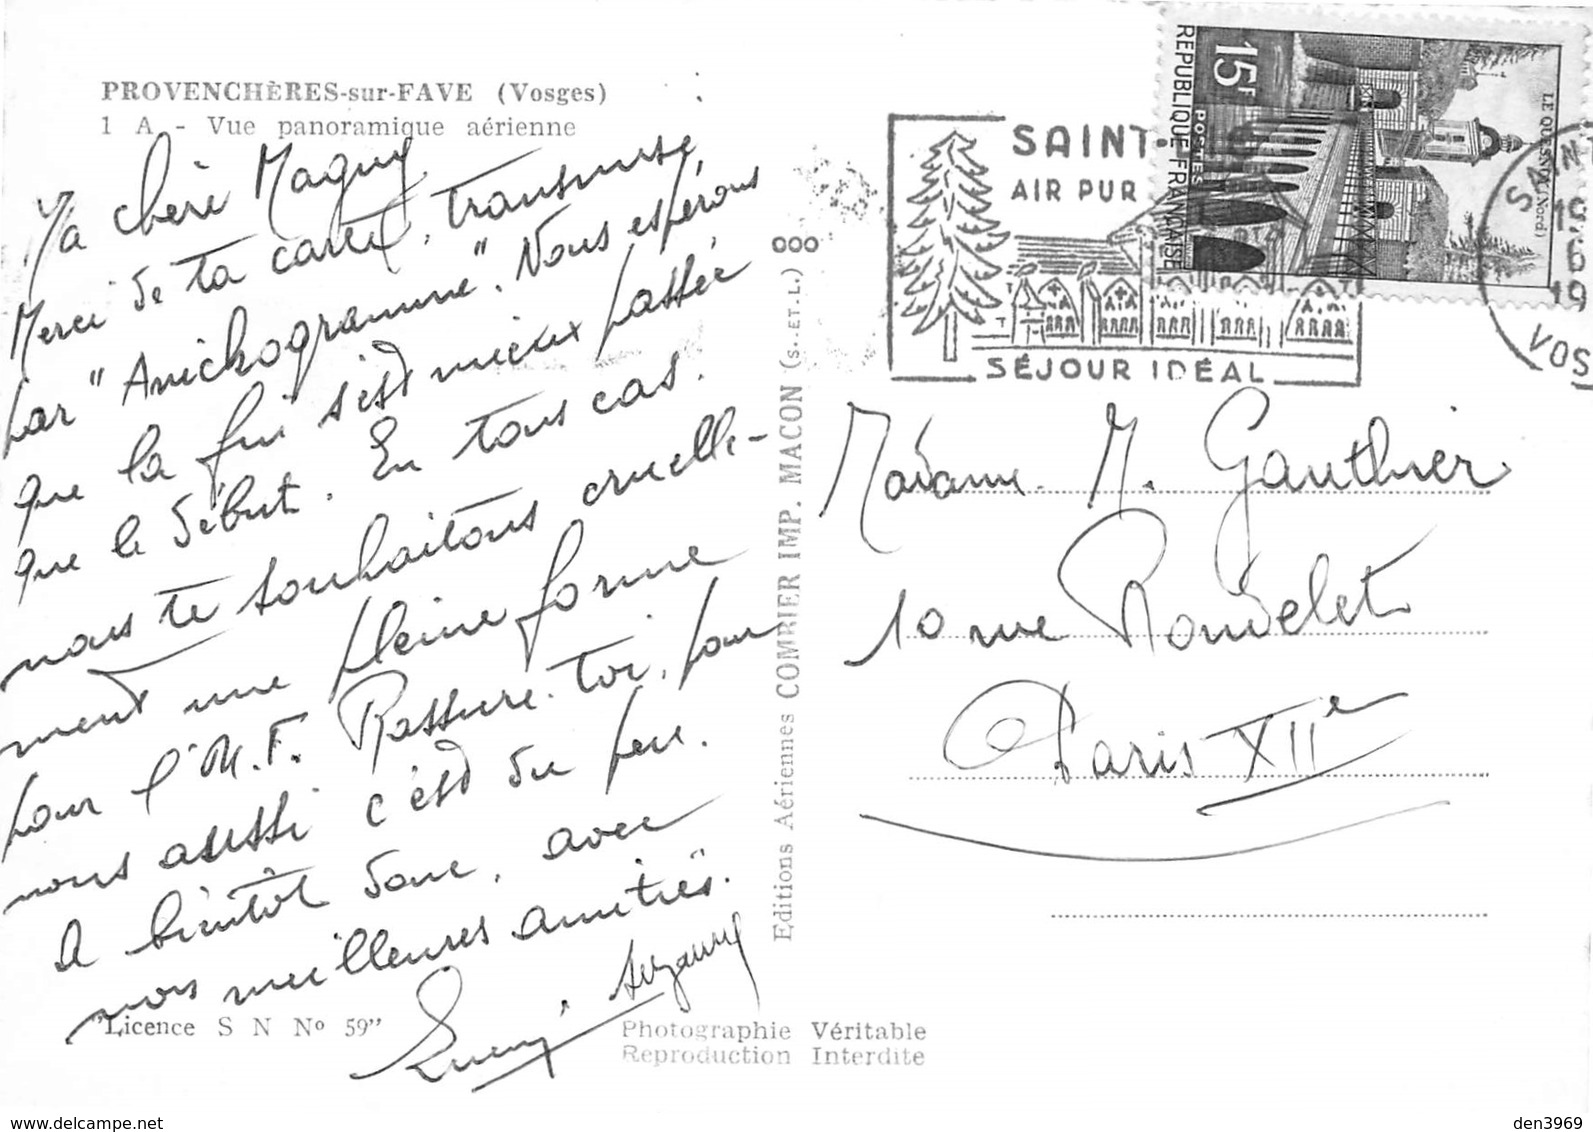 PROVENCHÈRES-sur-FAVE (Vosges)
1 A - Vue panoramique aérienne
Ma chère Maguy
Merci de ta carte, transmise
par "Anichogramme". Nous espérons
que la fin s'est mieux passée
que le début. En tous cas.
nous te souhaitons cruelle-
ment une pleine forme
pour l'M.F. Rassure-toi, pour
nous aussi c'est du peu.
A bientôt donc, avec
nos meilleures amitiés.
Suzanne
"Licence S N Nº 59"
Photographie Véritable
Reproduction Interdite
Editions Aériennes COMBIER IMP. MACON (S.-ET-L.)
SAINT-
AIR PUR
SÉJOUR IDÉAL
15F
POSTES
REPUBLIQUE FRANÇAISE
LE QUESNOY (Nord)
19
6
19
VOS
Madame M. Gauthier
10 rue Rondelet
Paris XIIe
den3969